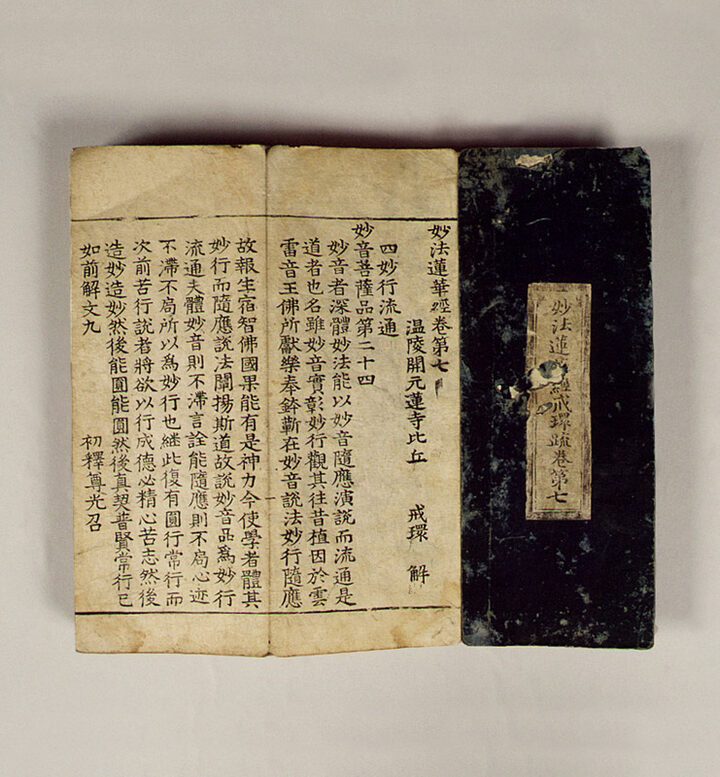 妙法蓮經戒環疏卷第七
妙法蓮華經卷第七
温陵開元蓮寺比丘 戒環 解
四妙行流通
妙音菩薩品第二十四
妙音者深體妙法能以妙音隨應演說而流通是
道者也名雖妙音實彰妙行觀其往昔植因於雲
雷音王佛所獻樂奉鉢蘄在妙音說法妙行隨應
故報生宿智佛國果能有是神力今使學者體其
妙行而隨應說法闡揚斯道故說妙音品爲妙行
流通夫體妙音則不滯言詮能隨應則不局心迹
不滯不局所以爲妙行也継此復有圓行常行而
次前苦行說者將欲以行成德必精心苦志然後
造妙造妙然後能圓能圓然後真契普賢常行已
如前解文九 初釋尊光召